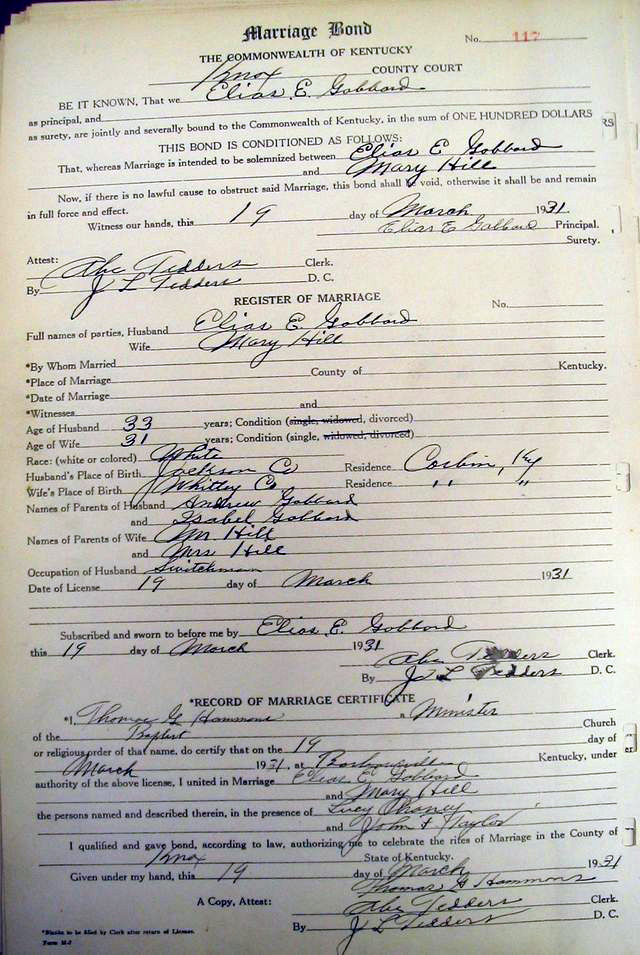 Marriage Bond
No. 117
THE COMMONWEALTH OF KENTUCKY
Knox COUNTY COURT
BE IT KNOWN, That we Elias E. Gabbard
as principal, and
as surety, are jointly and severally bound to the Commonwealth of Kentucky, in the sum of ONE HUNDRED DOLLARS
RS
THIS BOND IS CONDITIONED AS FOLLOWS:
That, whereas Marriage is intended to be solemnized between Elias E. Gabbard
and Mary Hill
Now, if there is no lawful cause to obstruct said Marriage, this bond shall be void, otherwise it shall be and remain
in full force and effect.
Witness our hands, this 19 day of March 1931.
Elias E Gabbard Principal.
Surety.
Attest:
Abe Tedders Clerk.
By J L Tedders D. C.
REGISTER OF MARRIAGE
No.
Full names of parties, Husband Elias E. Gabbard
Wife Mary Hill
*By Whom Married
*Place of Marriage County of Kentucky.
*Date of Marriage
*Witnesses and
Age of Husband 33 years; Condition (single, widowed, divorced)
Age of Wife 31 years; Condition (single, widowed, divorced)
Race: (white or colored) White
Husband's Place of Birth Jackson Co Residence Corbin, Ky
Wife's Place of Birth Whitley Co Residence " "
Names of Parents of Husband Andrew Gabbard
and Isabel Gabbard
Names of Parents of Wife Mr. Hill
and Mrs Hill
Occupation of Husband Switchman
Date of License 19 day of March 1931
Subscribed and sworn to before me by Elias E. Gabbard
this 19 day of March 1931
Abe Tedders Clerk.
By J L Tedders D. C.
*RECORD OF MARRIAGE CERTIFICATE
*I, Thomas G Hammons a Minister
of the Baptist Church
or religious order of that name, do certify that on the 19 day of
March 1931, at Barbourville Kentucky, under
authority of the above license, I united in Marriage Elias E Gabbard
and Mary Hill
the persons named and described therein, in the presence of Lucy
and John Taylor
I qualified and gave bond, according to law, authorizing me to celebrate the rites of Marriage in the County of
Knox State of Kentucky.
Given under my hand, this 19 day of March 1931
Thomas G Hammons
A Copy, Attest: Abe Tedders Clerk.
By J L Tedders D. C.
*Blanks to be filled by Clerk after return of License.